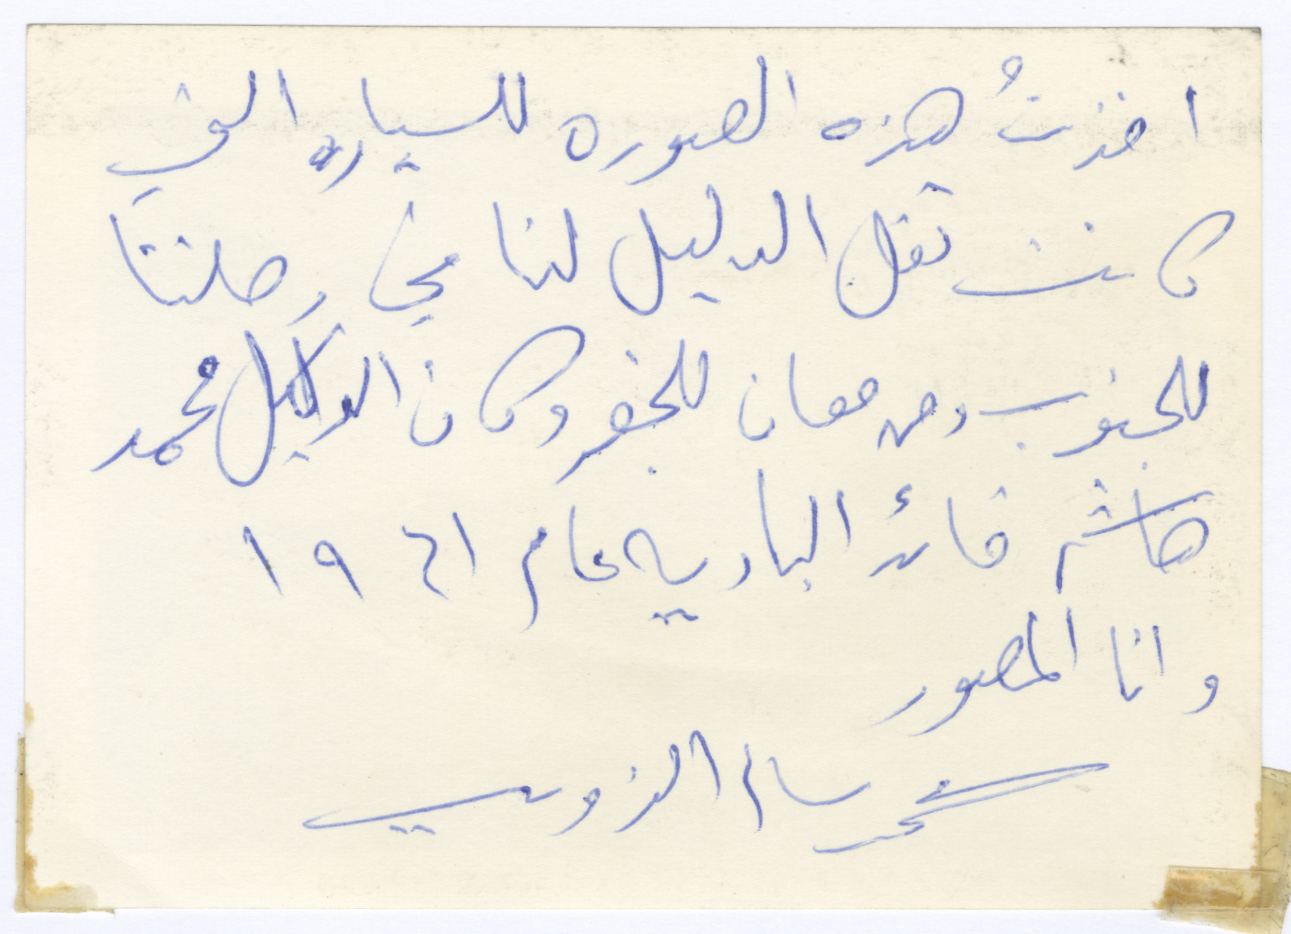 اخذتُ هذه الصوره للسياره التي
كانت تقل الدليل لنا في رحلتنا
للجنوب ومن معان للجفر وكان الوكيل محمد
هاشم قائد الباديه عام ١٩٦١
وانا المصور
سالم